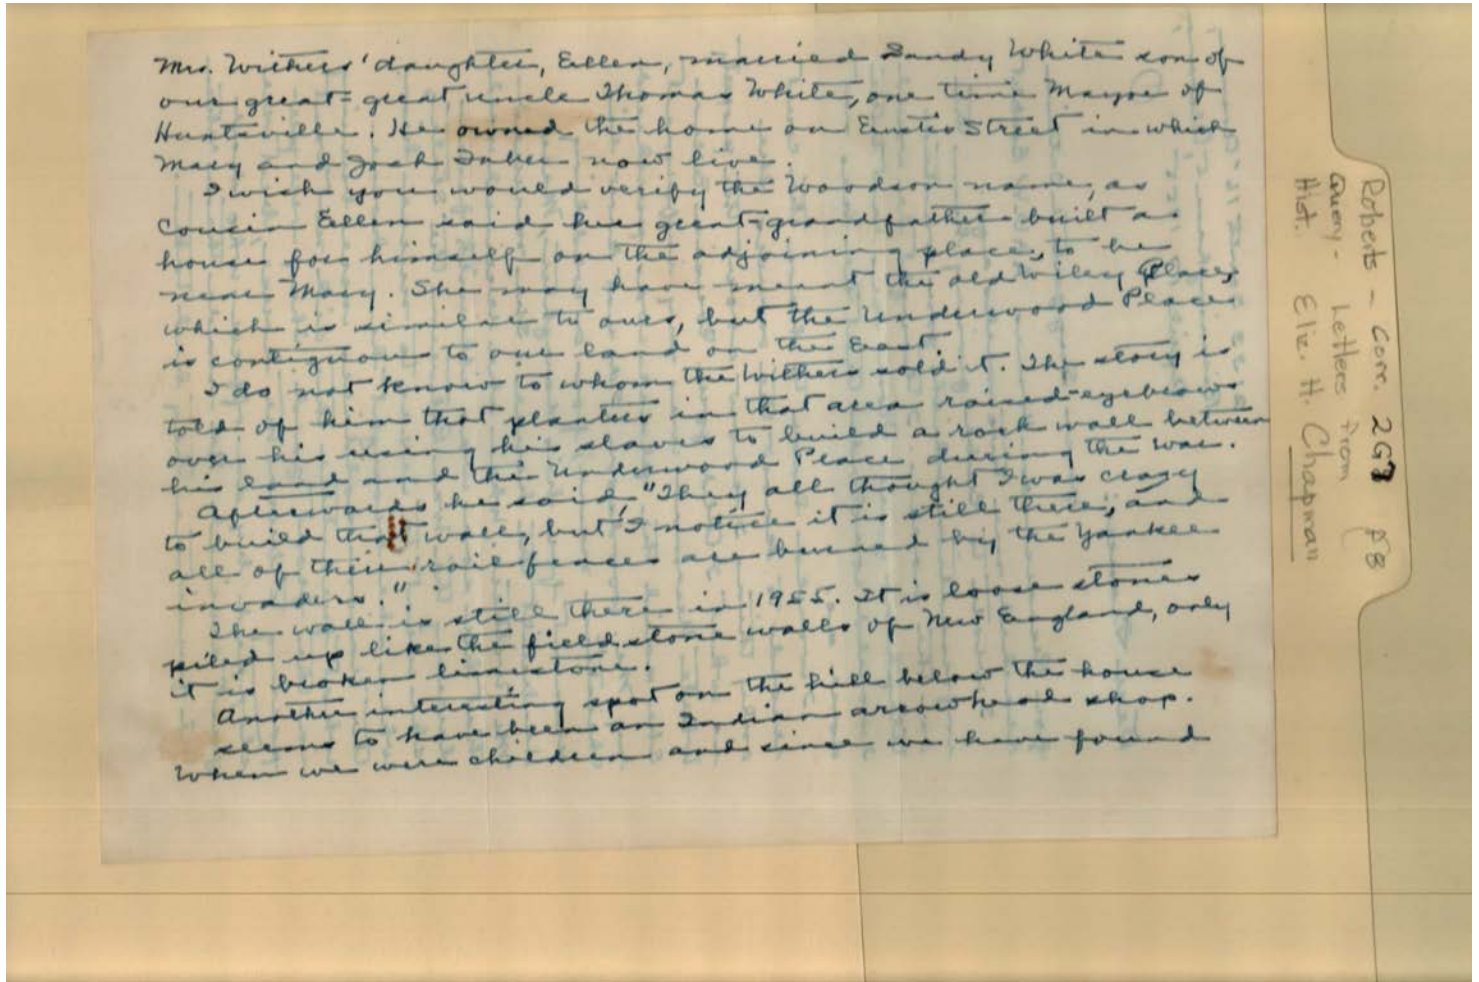 Mrs. Withers' daughter, Ellen, married Sandy White son of
our great-great uncle Thomas White, one time Mayor of
Huntsville. He owned the home on Eustis Street in which
Mary and Jack Taber now live.
I wish you would verify the Woodson name, as
Cousin Ellen said her great-grandfather built a
house for himself on the adjoining place, to be
near Mary. She may have meant the old Wiley Place,
which is similar to ours, but the Underwood Place
is contiguous to our land on the East.
I do not know to whom the Withers sold it. The story is
told of him that planters in that area raised eyebrows
over his using his slaves to build a rock wall between
his land and the Underwood Place during the war.
Afterwards he said, "They all thought I was crazy
to build that wall, but I notice it is still there, and
all of their rail fences are burned by the Yankee
invaders."
The wall is still there in 1955. It is loose stones
piled up like the field stone walls of New England, only
it is broken limestone.
Another interesting spot on the hill below the house
seems to have been an Indian arrowhead shop.
When we were children and since we have found
Roberts - Corr. 2G7 f8
Query - Letters from
Hist. Eliz. H. Chapman